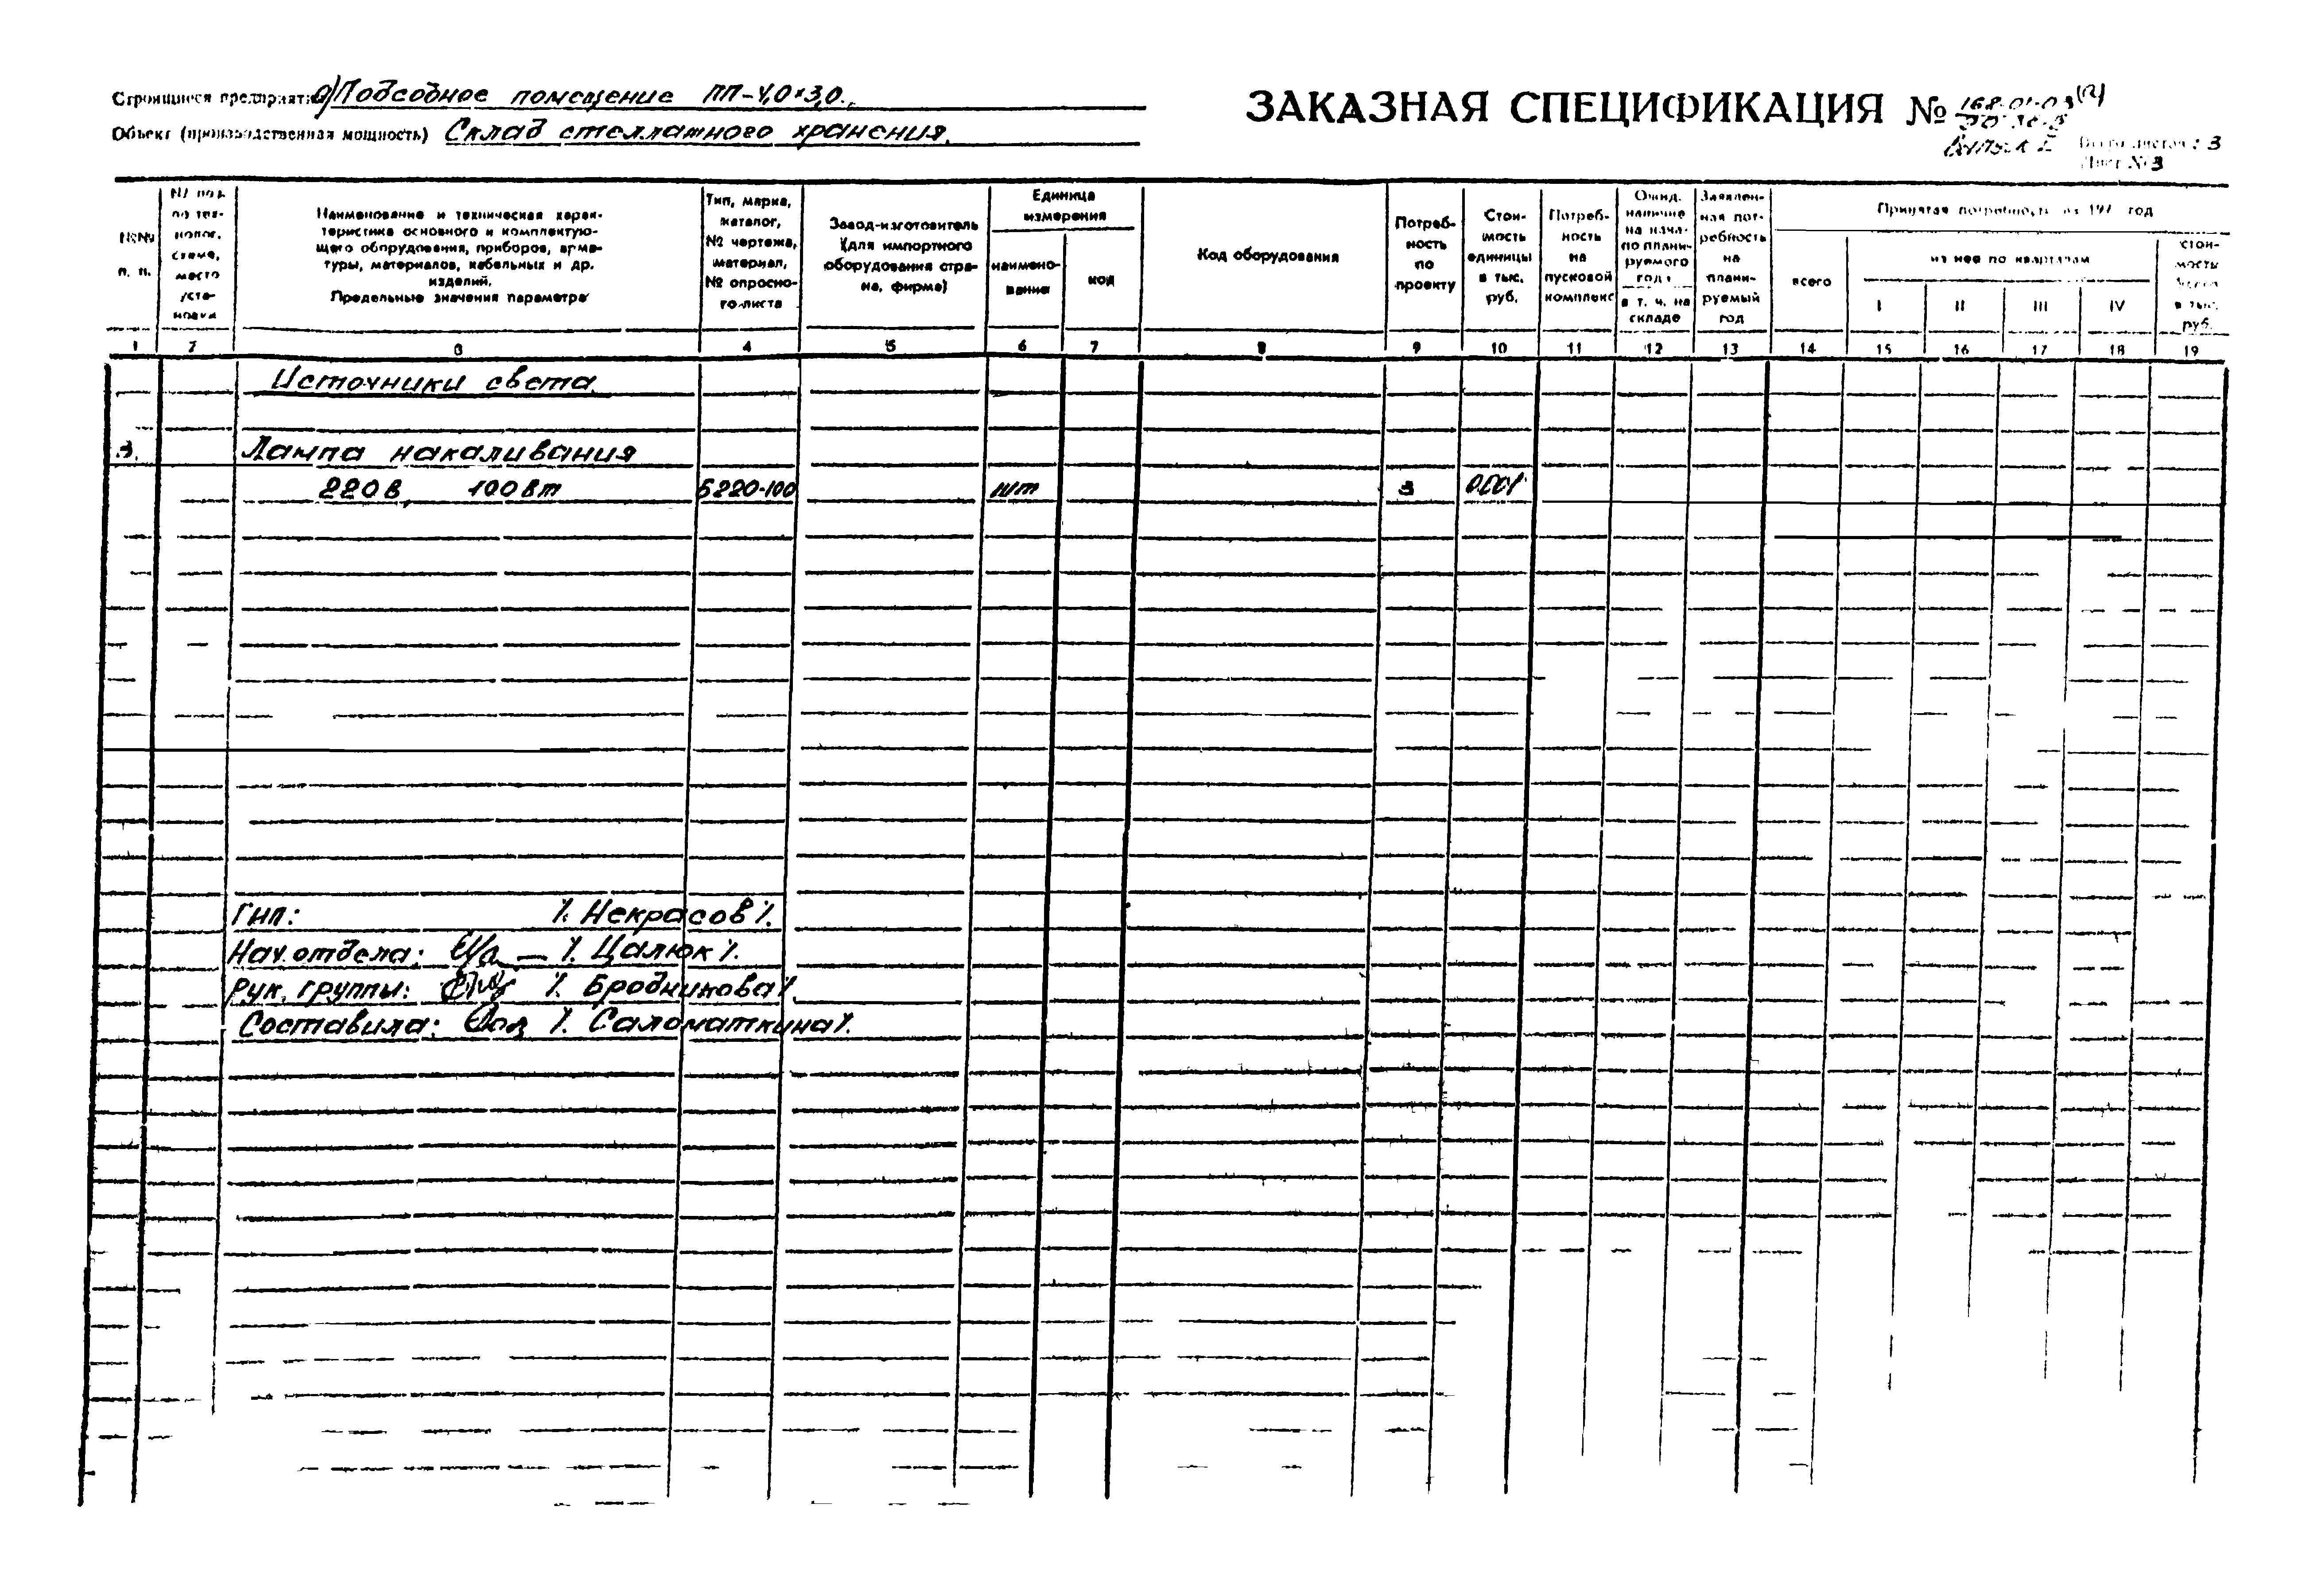 Строящиеся предприятия а) Подсобное помещение ПП-4,0×3,0.
Объект (производственная мощность) Склад стеллажного хранения.
ЗАКАЗНАЯ СПЕЦИФИКАЦИЯ № 168-01-03 (а)
Выпуск II
Всего листов: 3
Лист № 3
№№ п. п.
№ поз. по тех- нолог. схеме, место уста- новки
Наименование и техническая харак-
теристика основного и комплектую-
щего оборудования, приборов, арма-
туры, материалов, кабельных и др.
изделий.
Предельные значения параметра
Тип, марка,
каталог,
№ чертежа,
материал,
№ опросно-
го листа
Завод-изготовитель
(для импортного
оборудования стра-
на, фирма)
Единица
измерения
наимено-
вание
код
Код оборудования
Потреб-
ность
по
проекту
Стои-
мость
единицы
в тыс.
руб.
Потреб-
ность
на
пусковой
комплекс
Ожид.
наличие
на нача-
ло плани-
руемого
года
в т. ч. на
складе
Заявлен-
ная пот-
ребность
на
плани-
руемый
год
Принятая потребность на 197 год
всего
из нее по кварталам
I II III IV
стои-
мость
всего
в тыс.
руб.
1 2 3 4 5 6 7 8 9 10 11 12 13 14 15 16 17 18 19
Источники света
3. Лампа накаливания
220в, 100вт Б220-100 шт 3 0.001
Гип: /. Некрасов /.
Нач. отдела: /. Цалюк /.
Рук. группы: /. Бродникова /
Составила: /. Саломаткина /.